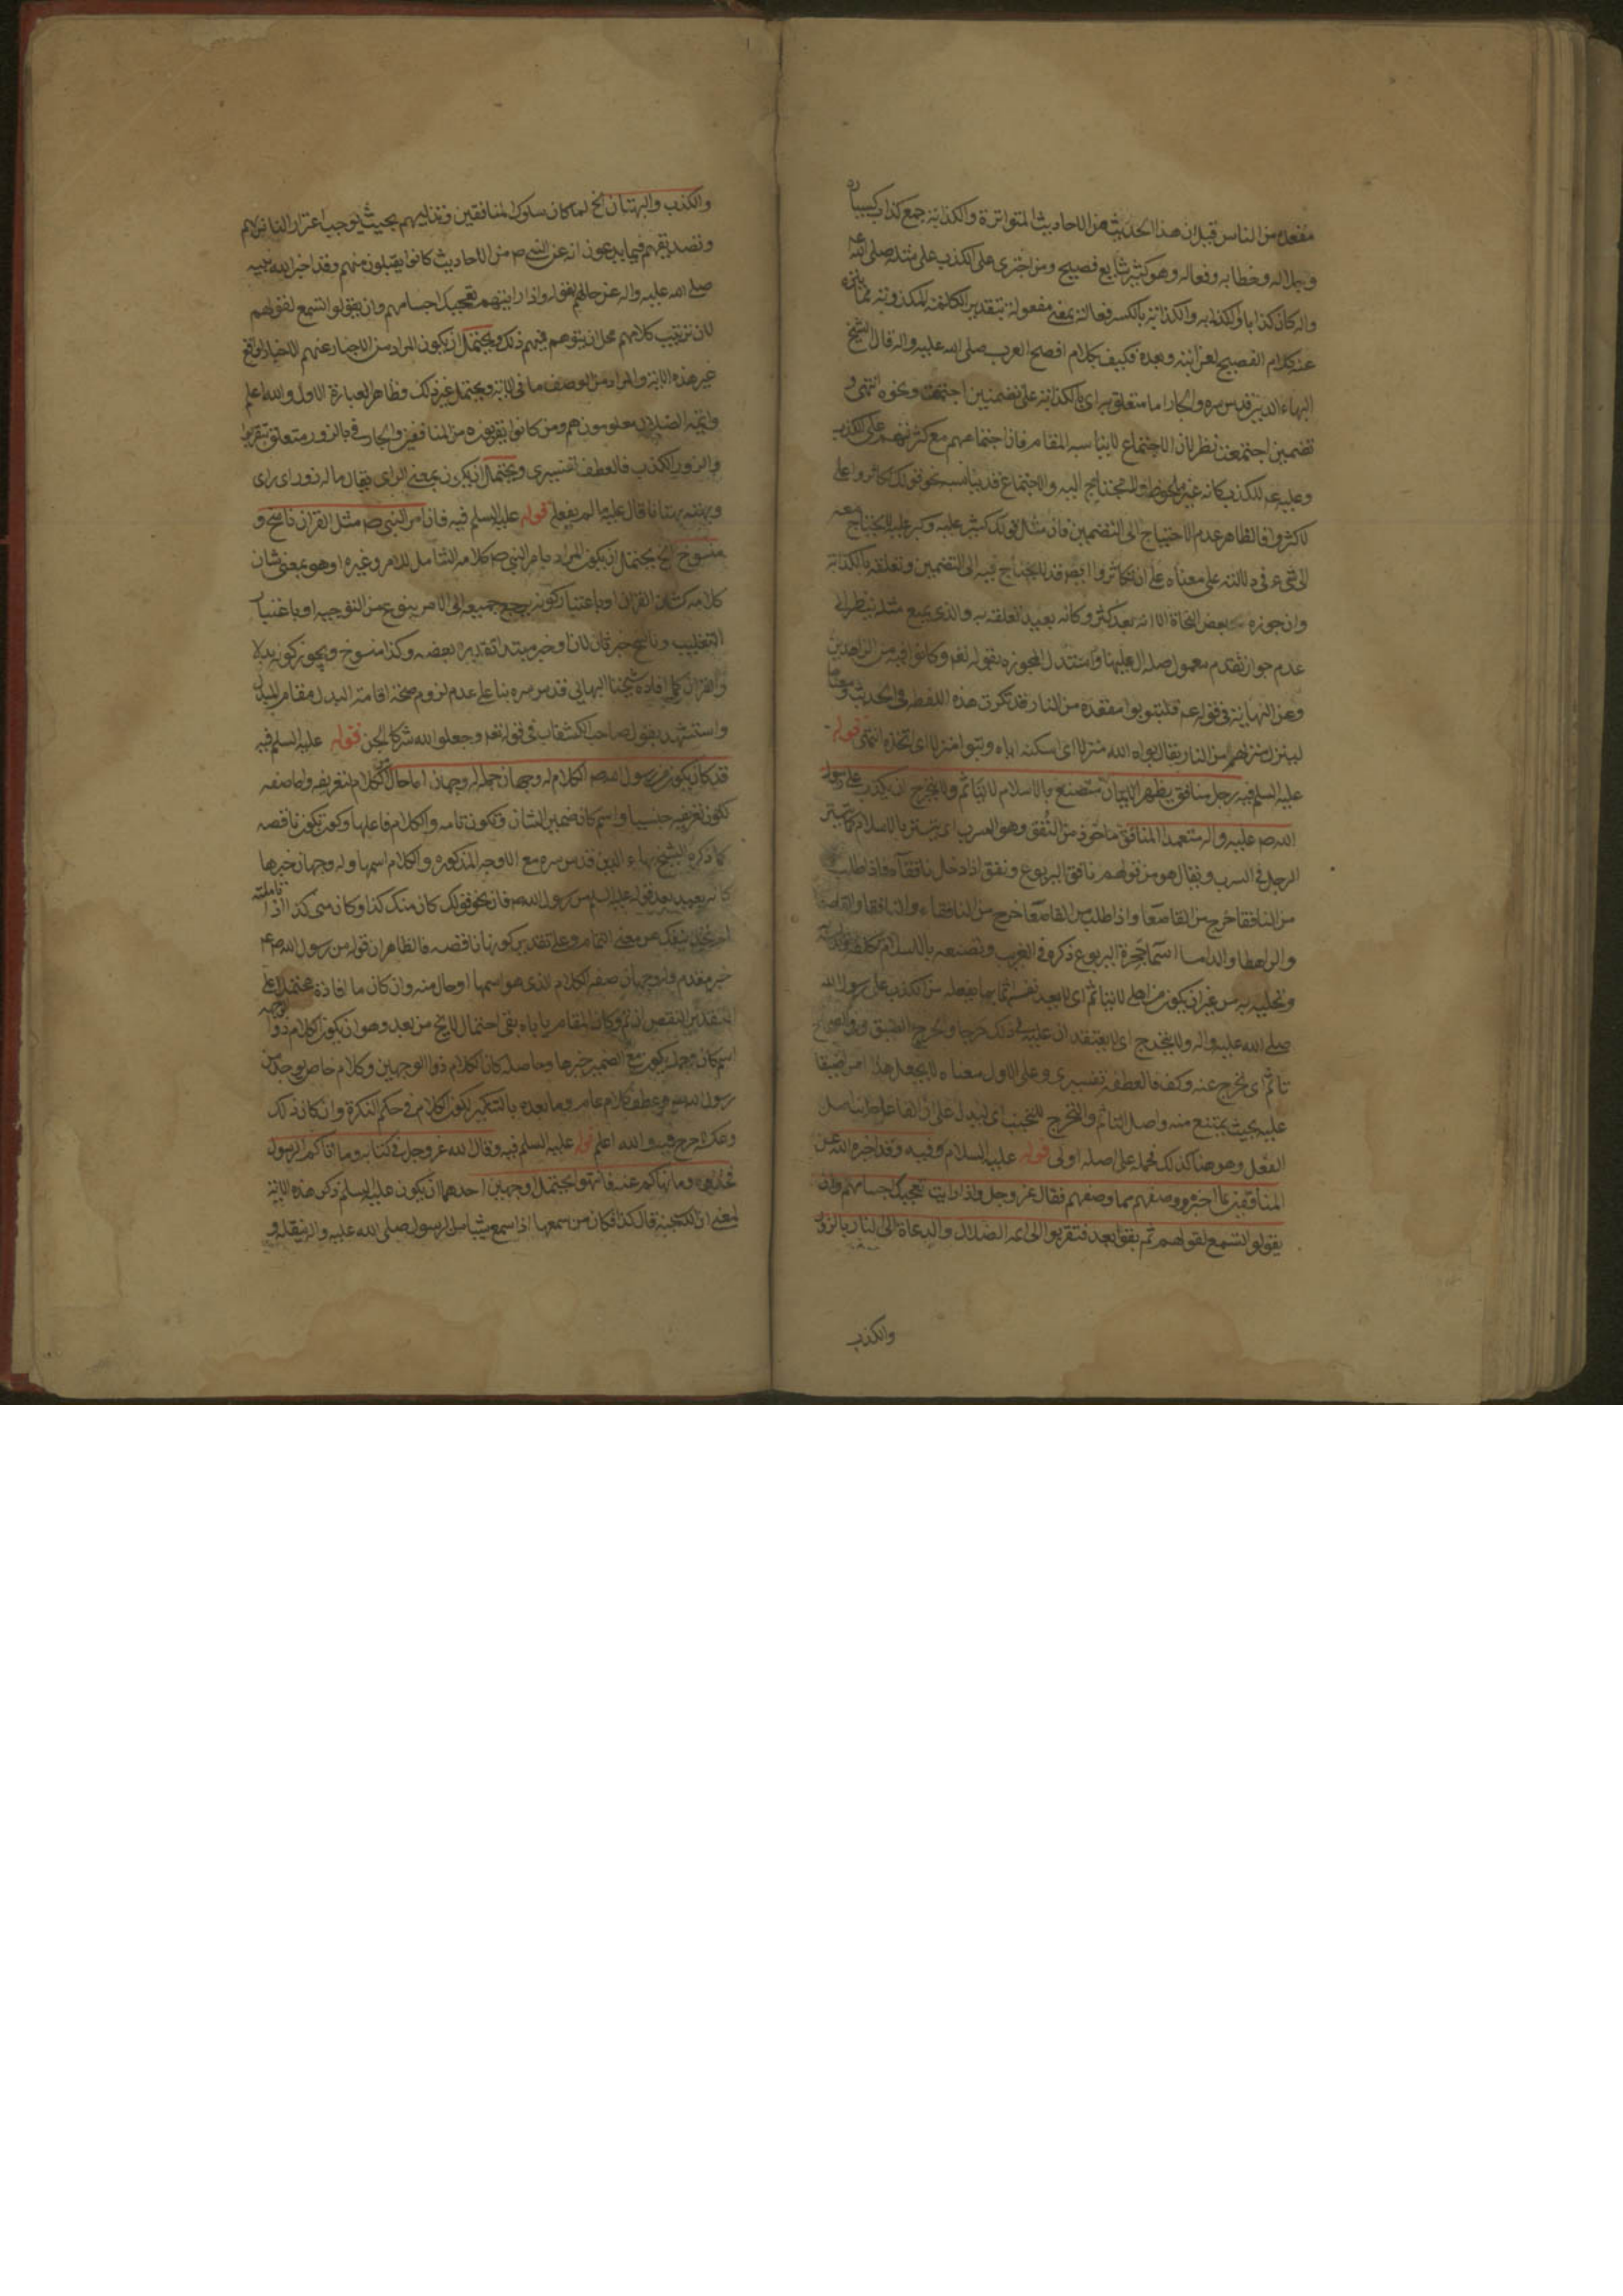 مقعده من النار قيل ان هذا الحديث من الاحاديث المتواترة والكذابة جمع كذاب
وجلاله وخطابه وفعاله وهو كثير شايع فصيح ومن اجترى على الكذب على مثله صلى الله عليه
واله كان كذابا والكذابة بالكسر فعالة بمعنى مفعولة بتقدير
عند كلام الفصيح لغرابته وبعده فكيف بكلام افصح العرب صلى الله عليه واله قال الشيخ
البهاء الدين قدس سره والجار اما متعلق به اى بالكذابة على تضمين اجتمعت ونحوه انتهى و
تضمين اجتمعت نظر لان الاجتماع لا يناسبه المقام فان اجتماعهم مع كثرتهم على الكذب
وعليه عم للكذب كانه غير ملحوظ والاجتماع قد يناسبه نحو قولك تكاثروا على
لاكثروا فالظاهر عدم الاحتياج الى التضمين فان مثل قولك كثير عليه وكبر عليه لا يحتاج معه
الى شىء فى دلالته على معناه على ان تكاثروا ايضا قد لا يحتاج فيه الى التضمين وتعلقه بالكذابة
وان جوزه بعض النحاة الا انه بعد كثر وكانه بعيد تعلقه به والذى يمنع مثله ينظر الى
عدم جواز تقدم معمول صلة ال عليها واستدل المجوزه بقوله تعه وكانوا فيه من الزاهدين
وعن النهاية فى قوله عم فليتبوا مقعده من النار قد تكررت هذه اللفظة فى الحديث ومعناها
لينزل منزله من النار يقال بواه الله منزلا اى اسكنه اياه وتبوا منزلا اى اتخذه انتهى قوله
عليه السلم فيه رجل منافق يظهر الايمان متصنع بالاسلام لا يتاثم ولا يتحرج ان يكذب على رسول
الله صم عليه واله متعمدا المنافق ماخوذ من النفق وهو السرب اى يتستر بالاسلام كما يتستر
الرجل فى السرب ويقال هو من قولهم نافق اليربوع ونفق اذا دخل نافقاه فاذا طلب
من النافقا خرج من القاصعا واذا طلب من القاصعا خرج من النافقاء والنافقا والقاصعا
والراهطا والداما اسماء جحرة اليربوع ذكره فى الغريب وتصنعه بالاسلام تكلفه
وتحليه به من غير ان يكون من اهله لا يتاثم اى لا يعد نفسه اثما بما يفعله من الكذب على رسول الله
صلى الله عليه واله ولا يتحرج اى لا يعتقد ان عليه فى ذلك حرجا والحرج الضيق
تاثم اى تحرج عنه وكف فالعطف تفسيرى وعلى الاول معناه لا يجعل هذا امرا ضيقا
عليه بحيث يمتنع منه واصل التاثم والتحرج للتجنب اى ليدل على ان الفاعل جانب اصل
الفعل وهو هنا كذلك فحمله على اصله اولى قوله عليه السلام فيه وقد اخبره الله عن
المنافقين بما اخبره ووصفهم بما وصفهم فقال عز وجل واذا رايت تعجبك اجسامهم وان
يقولوا تسمع لقولهم ثم بقوا بعد فتقربوا الى ائمة الضلال والدعاة الى النار بالزور
والكذب
والكذب والبهتان الخ لما كان سلوك المنافقين بحيث يوجب اغترار الناس بهم
وتصديقهم فيما يدعون انه عن النبى صم من الاحاديث كانوا يقبلون منهم وقد اخبر الله نبيه
صلى الله عليه واله عن حالهم بقوله واذا رايتهم تعجبك اجسامهم وان يقولوا تسمع لقولهم
لان ترتيب كلامهم محل ان يتوهم فيهم ذلك ويحتمل ان يكون المراد من الاخبار عنهم الاخبار الواقع
غير هذه الاية والمراد من الوصف ما فى الاية ويحتمل غير ذلك وظاهر العبارة الاول والله اعلم
وائمة الضلال معلومون هم ومن كانوا يقربونه من المنافقين والجار فى بالزور متعلق بتقربوا
والزور الكذب فالعطف تفسيرى ويحتمل ان يكون بمعنى الراى يقال ما له زور اى راى
وبهته بهتانا قال عليه ما لم يفعله قوله عليه السلم فيه فان امر النبى صم مثل القران ناسخ و
منسوخ الخ يحتمل ان يكون المراد بامر النبى صم كلامه الشامل للامر وغيره او هو بمعنى شان
كلامه كشان القران او باعتبار كونه يرجع جميعه الى الامر بنوع من التوجيه او باعتبار
التغليب وناسخ خبر ثان لان او خبر مبتدا تقديره بعضه وكذا منسوخ ويجوز كونه بدلا
والقران كما افاده شيخنا البهائى قدس سره بناء على عدم لزوم صحة اقامة البدل مقام المبدل
واستشهد بقول صاحب الكشاف فى قوله تعه وجعلوا لله شركاء الجن قوله عليه السلم فيه
قد كان يكون من رسول الله صم الكلام له وجهان جملة له وجهان اما حال من الكلام لتعريفه واما صفة
لكون تعريفه جنسيا واسم كان ضمير الشان ويكون تامة والكلام فاعلها وكون يكون ناقصة
كما ذكره الشيخ بهاء الدين قدس سره مع الاوجه المذكورة والكلام اسمها وله وجهان خبرها
كانه بعيد بعد قوله عليه السلم من رسول الله صم فان نحو قولك كان منك كذا وكان منى كذا اذا تاملته
لم تجده ينفك عن معنى التمام وعلى تقدير كونها ناقصة فالظاهر ان قوله من رسول الله صم
خبر مقدم وله وجهان صفة الكلام الذى هو اسمها او حال منه وان كان ما افاده محتملا على
التقدير النقص ان تم وكان المقام ياباه بقى احتمال لايح من بعد وهو ان يكون الكلام ذو الوجهين
اسم كان وجملة يكون مع الضمير خبرها وحاصله كان الكلام ذو الوجهين وكلام خاص يوجد من
رسول الله صم وعطف كلام عام وما بعده بالتنكير لكون الكلام فى حكم النكرة وان كان ذلك
وعكسه حرج فيه والله اعلم قوله عليه السلم فيه وقال الله عز وجل فى كتابه وما اتاكم الرسول
فخذوه وما نهاكم عنه فانتهوا يحتمل وجهين احدهما ان يكون عليه السلم ذكر هذه الاية
لمعنى ان الله سبحانه قال كذا فكان من سمعها اذا سمع شيئا من الرسول صلى الله عليه واله